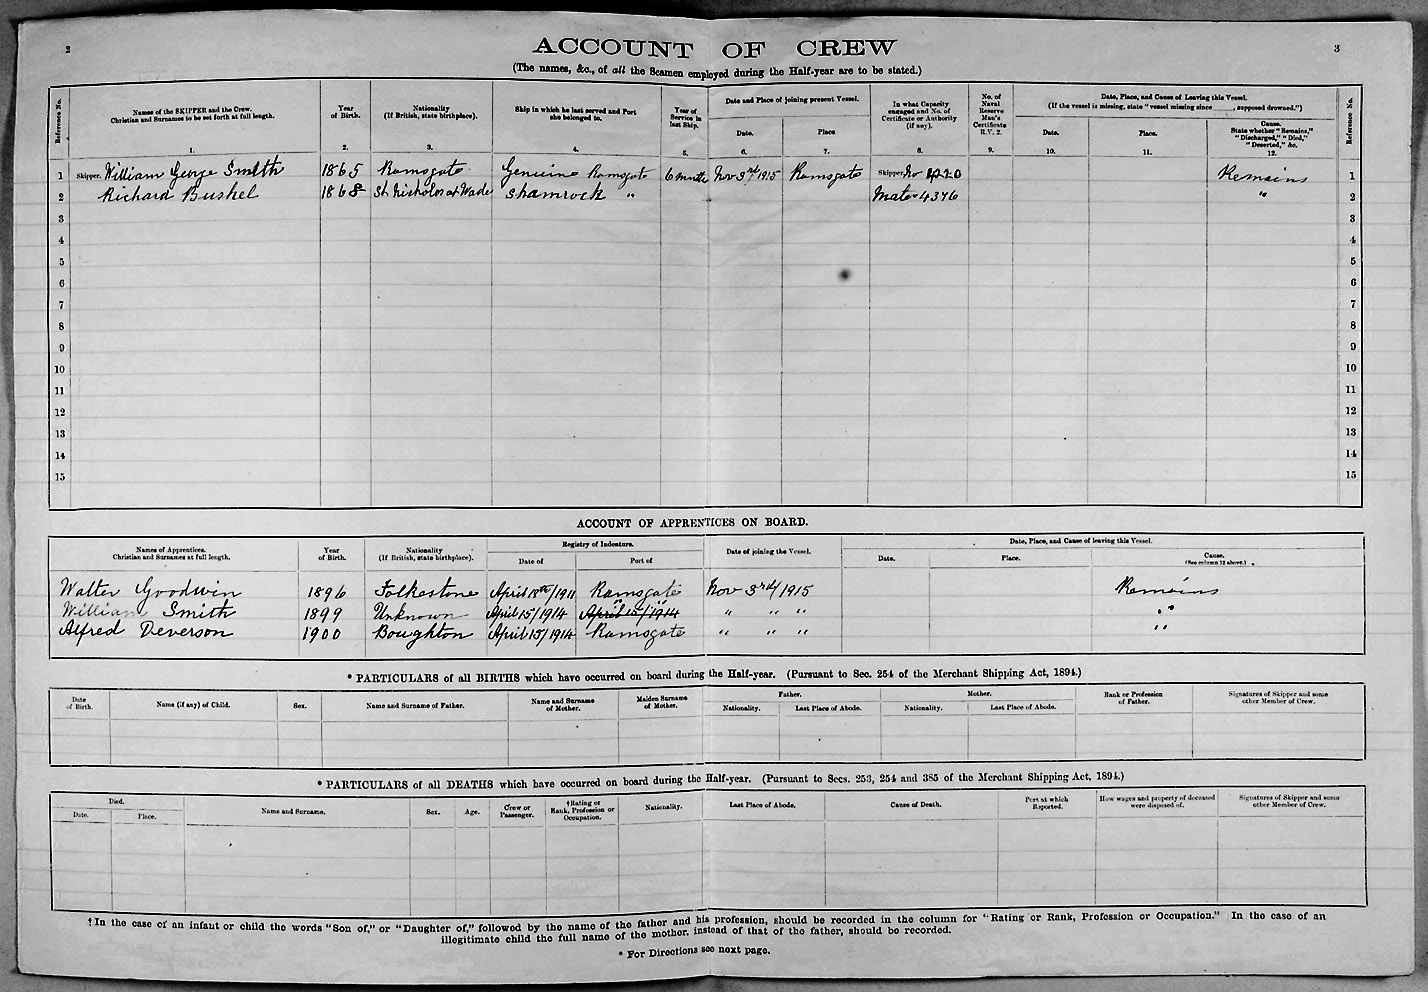 2
ACCOUNT OF CREW
3
(The names, &c., of all the Seamen employed during the Half-year are to be stated.)
Reference No.
Names of the SKIPPER and the Crew.
Christian and Surnames to be set forth at full length.
1.
Year of Birth.
2.
Nationality
(If British, state birthplace).
3.
Ship in which he last served and Port she belonged to.
4.
Year of Service in last Ship.
5.
Date and Place of joining present Vessel.
Date.
6.
Place
7.
In what Capacity engaged and No. of Certificate or Authority (if any).
8.
No. of Naval Reserve Man's Certificate R.V. 2.
9.
Date, Place, and Cause of Leaving this Vessel.
(If the vessel is missing, state "vessel missing since ____, supposed drowned.")
Date.
10.
Place.
11.
Cause.
State whether "Remains," "Discharged," "Died," "Deserted," &c.
12.
Reference No.
1 Skipper. William George Smith 1865 Ramsgate Genuine Ramsgate 6 months Nov 3rd 1915 Ramsgate Skipper. No 4220 Remains 1
2 Richard Bushel 1868 St Nicholas at Wade Shamrock " Mate 4376 " 2
3 3
4 4
5 5
6 6
7 7
8 8
9 9
10 10
11 11
12 12
13 13
14 14
15 15
ACCOUNT OF APPRENTICES ON BOARD.
Names of Apprentices.
Christian and Surnames at full length.
Year of Birth.
Nationality
(If British, state birthplace).
Registry of Indenture.
Date of
Port of
Date of joining the Vessel.
Date, Place, and Cause of leaving this Vessel.
Date.
Place.
Cause.
(See column 12 above.)
Walter Goodwin 1896 Folkestone April 18th/1911 Ramsgate Nov 3rd/1915 Remains
William Smith 1899 Unknown April 15/1914 " April 15/1914 " " " " "
Alfred Deverson 1900 Boughton April 15/1914 Ramsgate " " " "
* PARTICULARS of all BIRTHS which have occurred on board during the Half-year. (Pursuant to Sec. 254 of the Merchant Shipping Act, 1894.)
Date of Birth.
Name (if any) of Child.
Sex.
Name and Surname of Father.
Name and Surname of Mother.
Maiden Surname of Mother.
Father.
Nationality.
Last Place of Abode.
Mother.
Nationality.
Last Place of Abode.
Rank or Profession of Father.
Signatures of Skipper and some other Member of Crew.
* PARTICULARS of all DEATHS which have occurred on board during the Half-year. (Pursuant to Secs. 253, 254 and 385 of the Merchant Shipping Act, 1894.)
Died.
Date.
Place.
Name and Surname.
Sex.
Age.
Crew or Passenger.
†Rating or Rank, Profession or Occupation.
Nationality.
Last Place of Abode.
Cause of Death.
Port at which Reported.
How wages and property of deceased were disposed of.
Signatures of Skipper and some other Member of Crew.
† In the case of an infant or child the words "Son of," or "Daughter of," followed by the name of the father and his profession, should be recorded in the column for "Rating or Rank, Profession or Occupation." In the case of an
illegitimate child the full name of the mother, instead of that of the father, should be recorded.
* For Directions see next page.